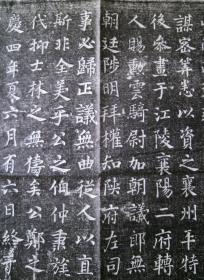 謀容筭悉以資之襄州平特
後參畫于江陵襄陽二府轉
人賜勳雲騎尉加朝議郎無
朝廷陟明拜權知陝府左司
事必歸正議無曲從人以直
斯非全美乎公之伯仲秉旄
代抑士林之無儔矣公鄭之
慶四年夏六月有六日終于